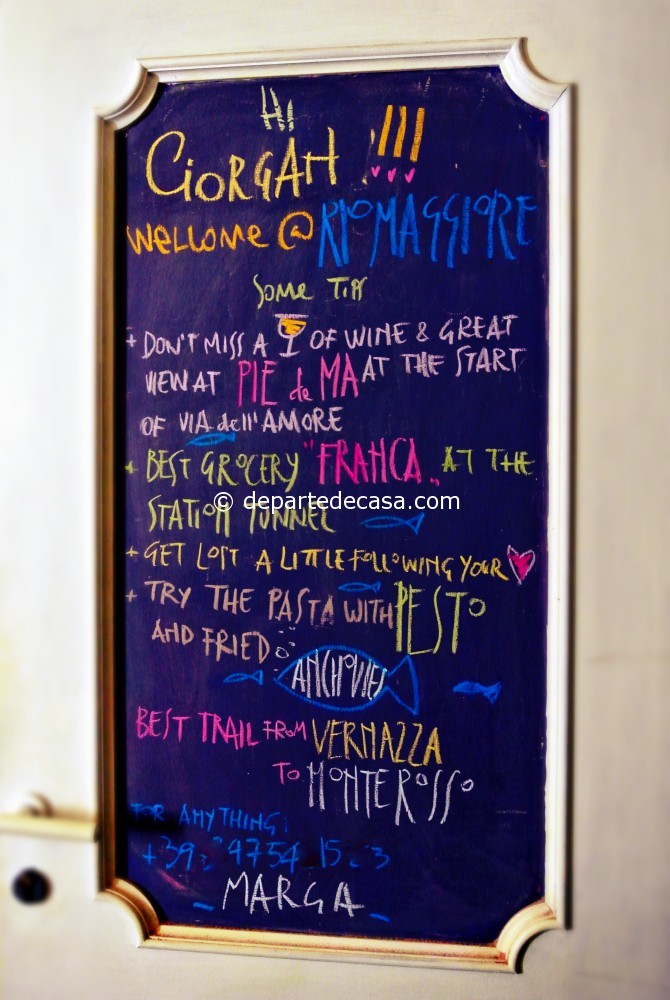 Hi
GiORGAH !!!!
WELLOME @ RIOMAGGIORE
Some Tips
+ DON'T MISS A OF WINE & GREAT
VIEW AT PIE de MA AT THE START
OF VIA dell'AMORE
+ BEST GROCERY "FRANCA„ AT THE
© departedecasa.com
STATION TUNNEL
+ GET LOST A LITTLE FOLLOWING YOUR
+ TRY THE PASTA WITH PESTO
AND FRIED
ANCHOVIES
BEST TRAIL FROM VERNAZZA
TO MONTEROSSO
FOR ANYTHING:
+39
MARGA